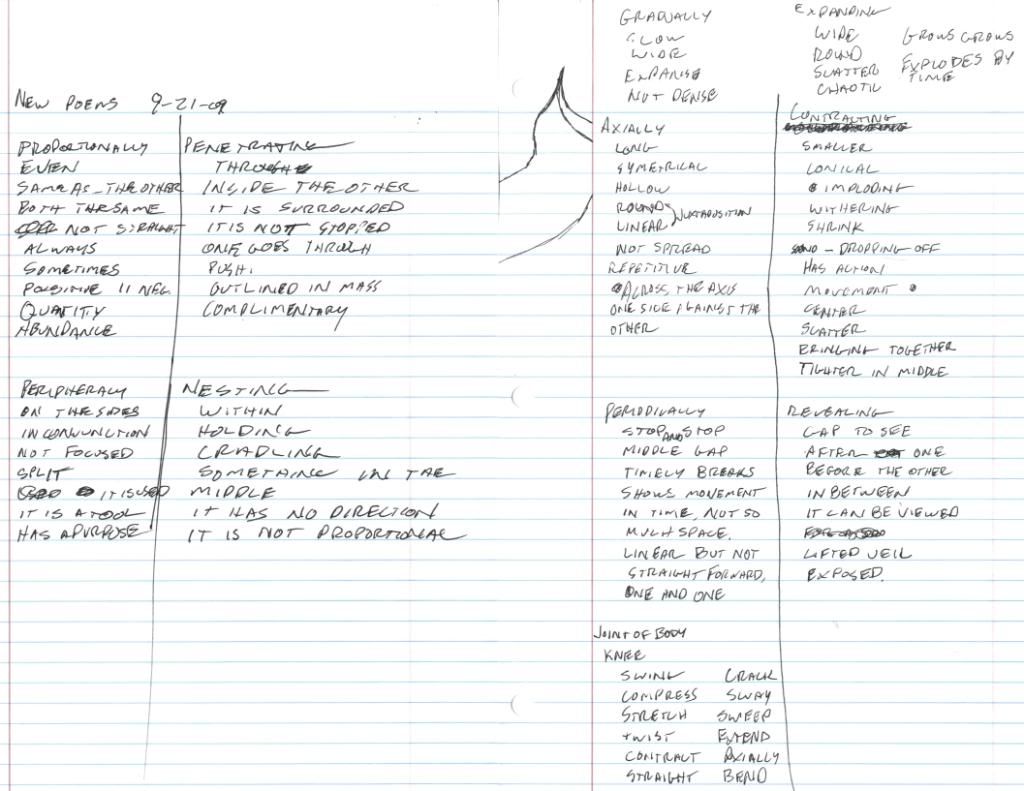 NEW POEMS 9-21-09
PROPORTIONALLY
EVEN
SAME AS - THE OTHER
BOTH THE SAME
NOT STRAIGHT
ALWAYS
SOMETIMES
POSITIVE II NEG.
QUATITY
ABUNDANCE
PENETRATING
THROUGH
INSIDE THE OTHER
IT IS SURROUNDED
IT IS NOT STOPPED
ONE GOES THROUGH
PUSH.
OUTLINED IN MASS
COMPLIMENTARY
PERIPHERALY
ON THE SIDES
IN CONJUNCTION
NOT FOCUSED
SPLIT
IT IS USED
IT IS A TOOL
HAS A PURPOSE
NESTING
WITHIN
HOLDING
CRADLING
SOMETHING IN THE
MIDDLE
IT HAS NO DIRECTION
IT IS NOT PROPORTIONAL
GRADUALLY
SLOW
WIDE
EXPANISE
NOT DENSE
EXPANDING
WIDE
ROUND
SCATTER
CHAOTIC
GROWS GROWS
EXPLODES BY
TIME
AXIALLY
LONG
SYMETRICAL
HOLLOW
ROUND
LINEAR
JUXTAPOSITION
NOT SPREAD
REPETITIVE
ACROSS THE AXIS
ONE SIDE AGAINST THE
OTHER
CONTRACTING
SMALLER
CONICAL
IMPLODING
WITHERING
SHRINK
- DROPPING OFF
HAS ACTION
MOVEMENT
CENTER
SCATTER
BRINGING TOGETHER
TIGHTER IN MIDDLE
PERIODICALLY
STOP AND STOP
MIDDLE GAP
TIMELY BREAKS
SHOWS MOVEMENT
IN TIME, NOT SO
MUCH SPACE.
LINEAR BUT NOT
STRAIGHT FORWARD,
ONE AND ONE
REVEALING
GAP TO SEE
AFTER ONE
BEFORE THE OTHER
IN BETWEEN
IT CAN BE VIEWED
LIFTED VEIL
EXPOSED.
JOINT OF BODY
KNEE
SWING CRACK
COMPRESS SWAY
STRETCH SWEEP
TWIST EXTEND
CONTRACT AXIALLY
STRAIGHT BEND